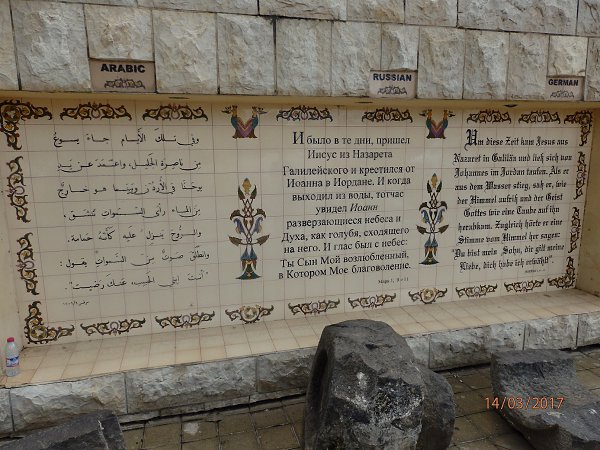 ARABIC
وفي تلك الأيام جاء يسوع
من ناصرة الجليل، واعتمد عن يد
يوحنا في الأردن وبينما هو خارج
من الماء رأى السموات تنشق،
والروح ينزل عليه كأنه حمامة.
وانطلق صوت من السموات يقول:
"أنت ابني الحبيب، عنك رضيت".
RUSSIAN
И было в те дни, пришел
Иисус из Назарета
Галилейского и крестился от
Иоанна в Иордане. И когда
выходил из воды, тотчас
увидел Иоанн
разверзающиеся небеса и
Духа, как голубя, сходящего
на него. И глас был с небес:
Ты Сын Мой возлюбленный,
в Котором Мое благоволение.
Марк 1, 9 - 11
GERMAN
Um diese Zeit kam Jesus aus
Nazaret in Galiläa und ließ sich von
Johannes im Jordan taufen. Als er
aus dem Wasser stieg, sah er, wie
der Himmel aufriß und der Geist
Gottes wie eine Taube auf ihn
herabkam. Zugleich hörte er eine
Stimme vom Himmel her sagen:
"Du bist mein Sohn, dir gilt meine
Liebe, dich habe ich erwählt".
14/03/2017